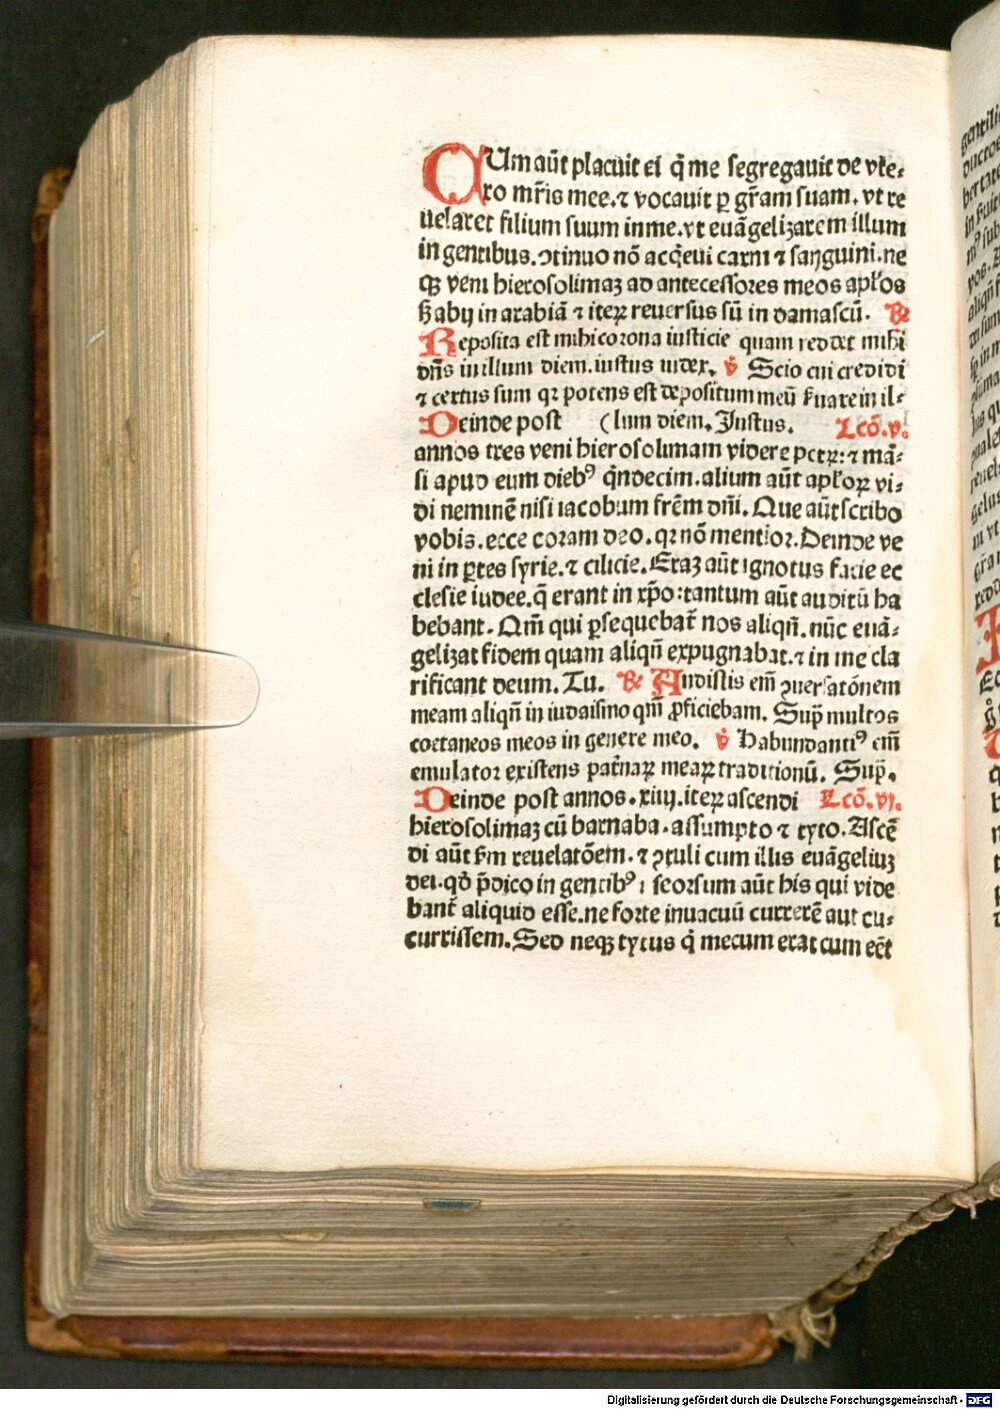 CUm aūt placuit ei q̄ me segregauit de vte⸗
ro mr̄is mee.⁊ vocauit ꝑ gr̄am suam. vt re
uelaret filium suum inme.vt euāgelizarem illum
in gentibus.ↄtinuo nō acq̄eui carni ⁊ sanguini.ne
qꝫ veni hierosolimaꝫ ad antecessores meos apl'os
sꝫ abij in arabiā ⁊ iteꝝ reuersus sū in damascū. ℟
Reposita est mihi corona iusticie quam reddet mihi
dn̄s in illum diem.iustus iudex. ℣ Scio cui credidi
⁊ certus sum qꝛ potens est depositum meū ẜuare in il⸗
Deinde post (lum diem. Justus. Lcō.v.
annos tres veni hierosolimam videre petꝝ:⁊ mā⸗
si apud eum diebꝰ q̄ndecim.alium aūt apl'oꝝ vi⸗
di neminē nisi iacobum frēm dn̄i. Que aūt scribo
vobis.ecce coram deo.qꝛ nō mentior.Deinde ve
ni in ꝑtes syrie.⁊ cilicie.Eraꝫ aūt ignotus facie ec
clesie iudee.q̄ erant in xp̄o:tantum aūt auditū ha
bebant. Qm̄ qui ꝑsequebat̄ nos aliqn̄.nūc euā⸗
gelizat fidem quam aliqn̄ expugnabat.⁊ in me cla
rificant deum. Tu. ℟ Audistis em̄ ↄuersatōnem
meam aliqn̄ in iudaismo qm̄ ꝓficiebam. Sup̄ multos
coetaneos meos in genere meo. ℣ Habundantiꝰ em̄
emulator existens pat̄naꝝ meaꝝ traditionū. Sup̄.
Deinde post annos.xiiij.iteꝝ ascendi Lcō.vj.
hierosolimaꝫ cū barnaba.assumpto ⁊ tyto.Ascē
di aūt ẜm reuelatōem.⁊ ↄtuli cum illis euāgeliuꝫ
dei.qđ p̄dico in gentibꝰ ⁊ seorsum aūt his qui vide
bant̄ aliquid esse.ne forte inuacuū currerē aut cu⸗
currissem.Sed neqꝫ tytus q̄ mecum erat cum eēt
Digitalisierung gefördert durch die Deutsche Forschungsgemeinschaft - DFG